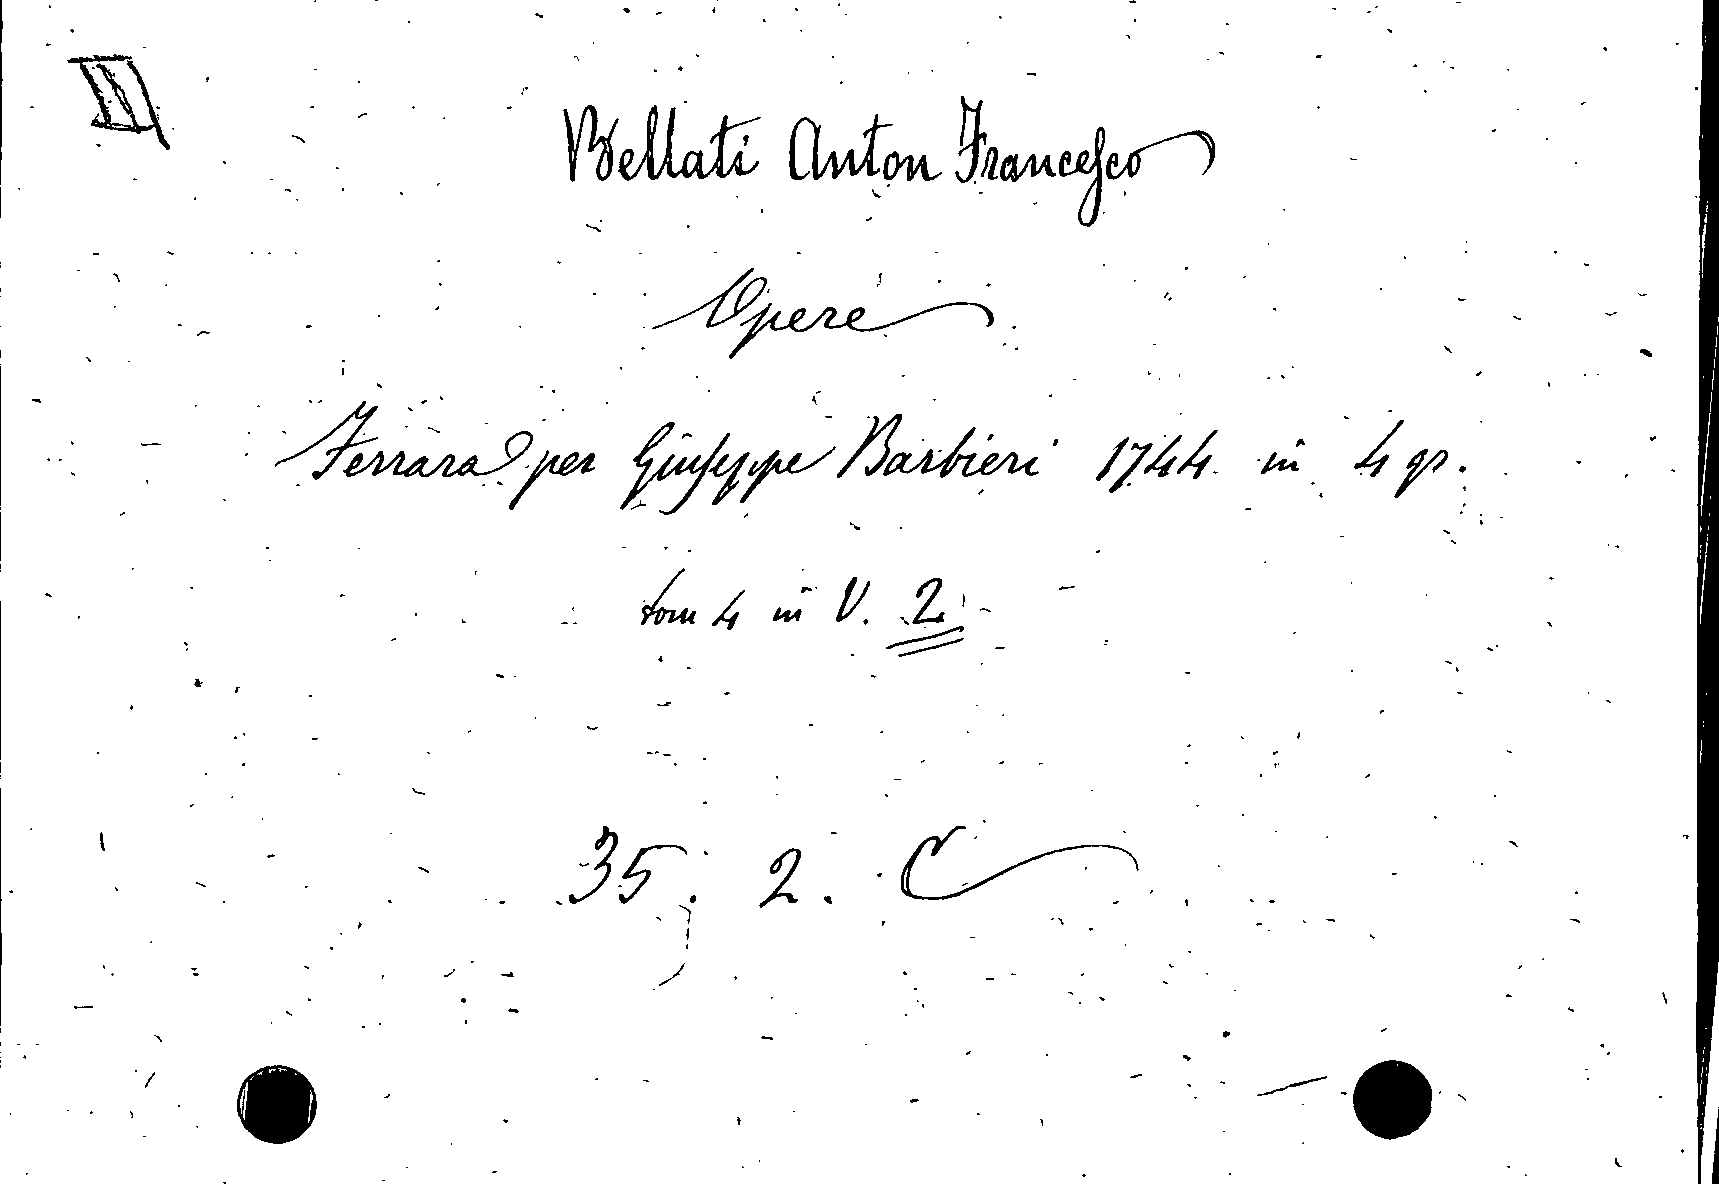 III
Bellati Anton Francesco
Opere
Ferrara per Giuseppe Barbieri 1744 in 4 gr.
tom 4 in V. 2
35. 2. C